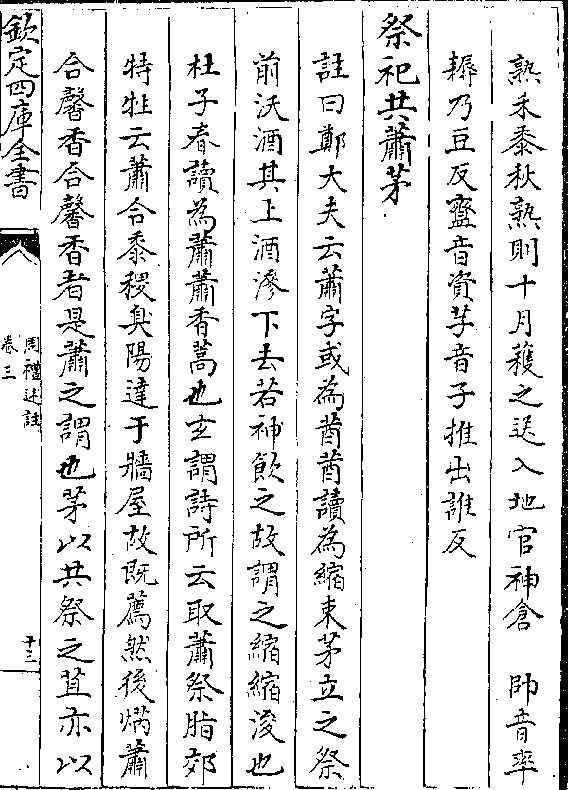 熟禾黍秋熟則十月穫之送入地官神倉　帥音率
耨乃豆反齍音資芓音子推出誰反
祭祀共蕭茅
註曰鄭大夫云蕭字或為莤莤讀為縮束茅立之祭
前沃酒其上酒滲下去若神飲之故謂之縮縮浚也
杜子春讀為蕭蕭香蒿也玄謂詩所云取蕭祭脂郊
特牲云蕭合黍稷臭陽達于牆屋故既薦然後焫蕭
合馨香合馨香者是蕭之謂也茅以共祭之苴亦以
欽定四庫全書
周禮述註
卷三
十三